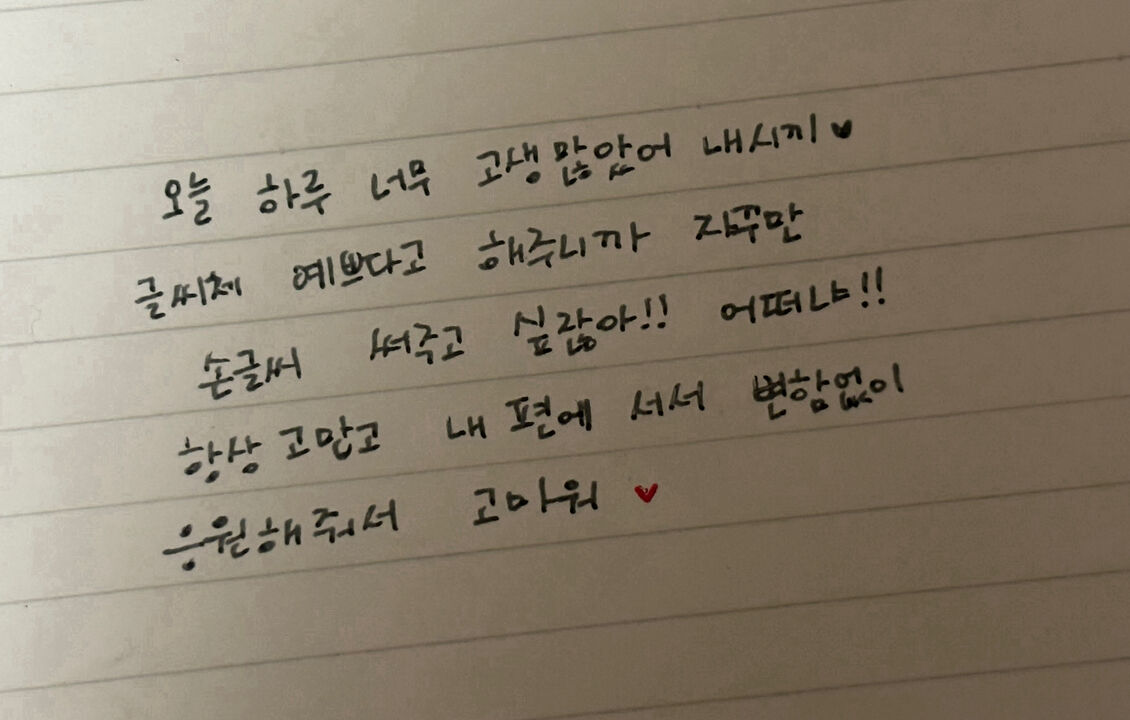 오늘 하루 너무 고생많았어 내시끼♥
글씨체 예쁘다고 해주니까 자꾸만
손글씨 써주고 싶잖아!! 어떠냐!!
항상 고맙고 내 편에 서서 변함없이
응원해줘서 고마워 ♥